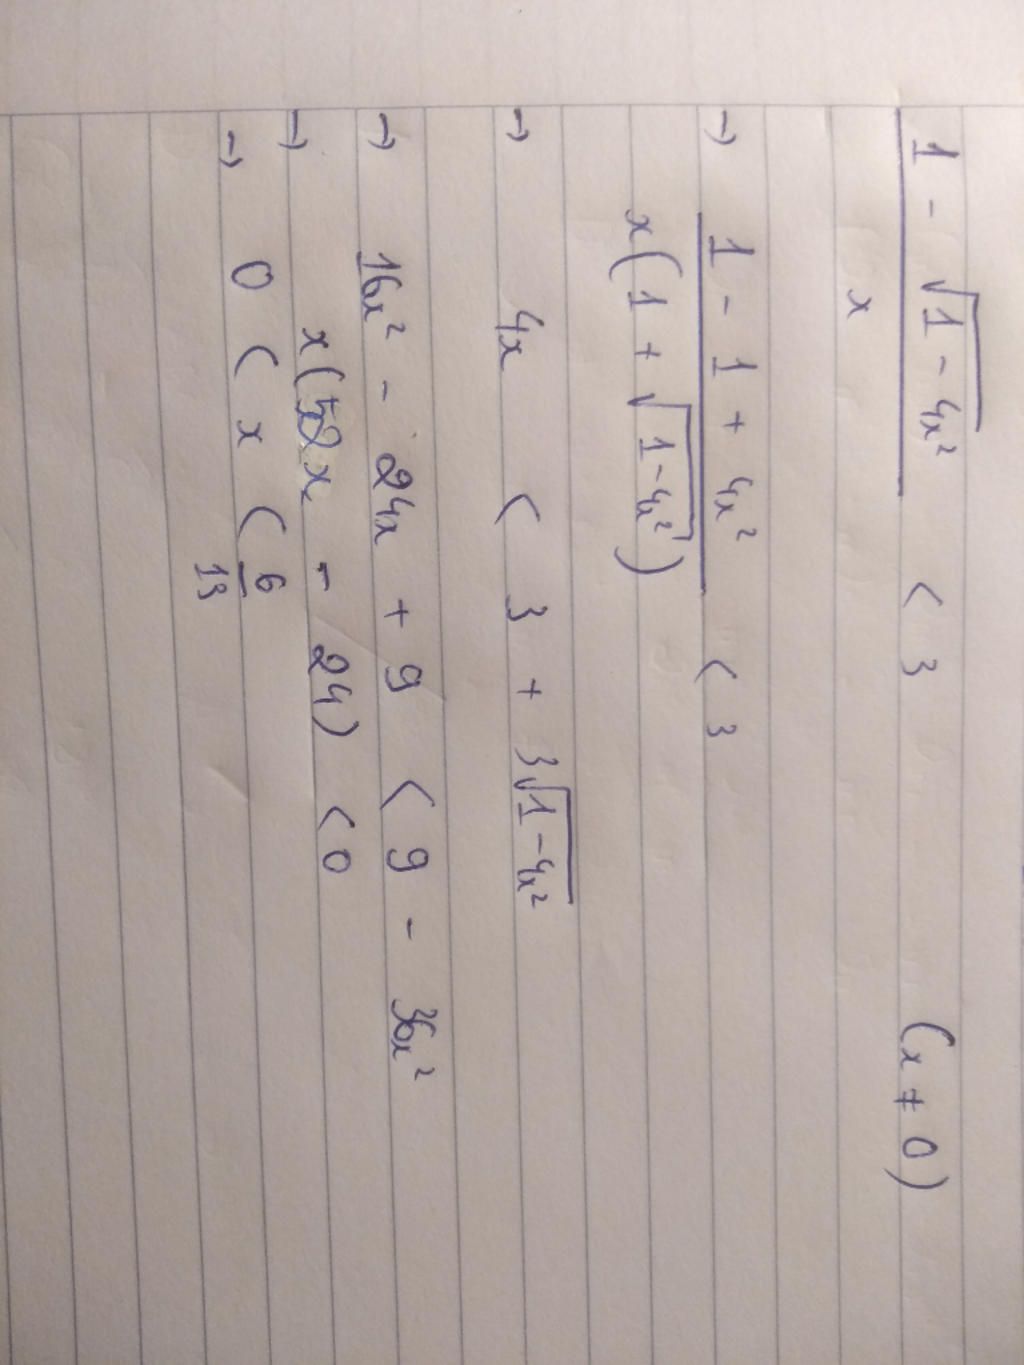 (1 - √(1 - 4x²)) / x < 3 (x ≠ 0)
→ (1 - 1 + 4x²) / (x(1 + √(1-4x²))) < 3
→ 4x < 3 + 3√(1-4x²)
→ 16x² - 24x + 9 < 9 - 36x²
→ x(52x - 24) < 0
→ 0 < x < 6/13